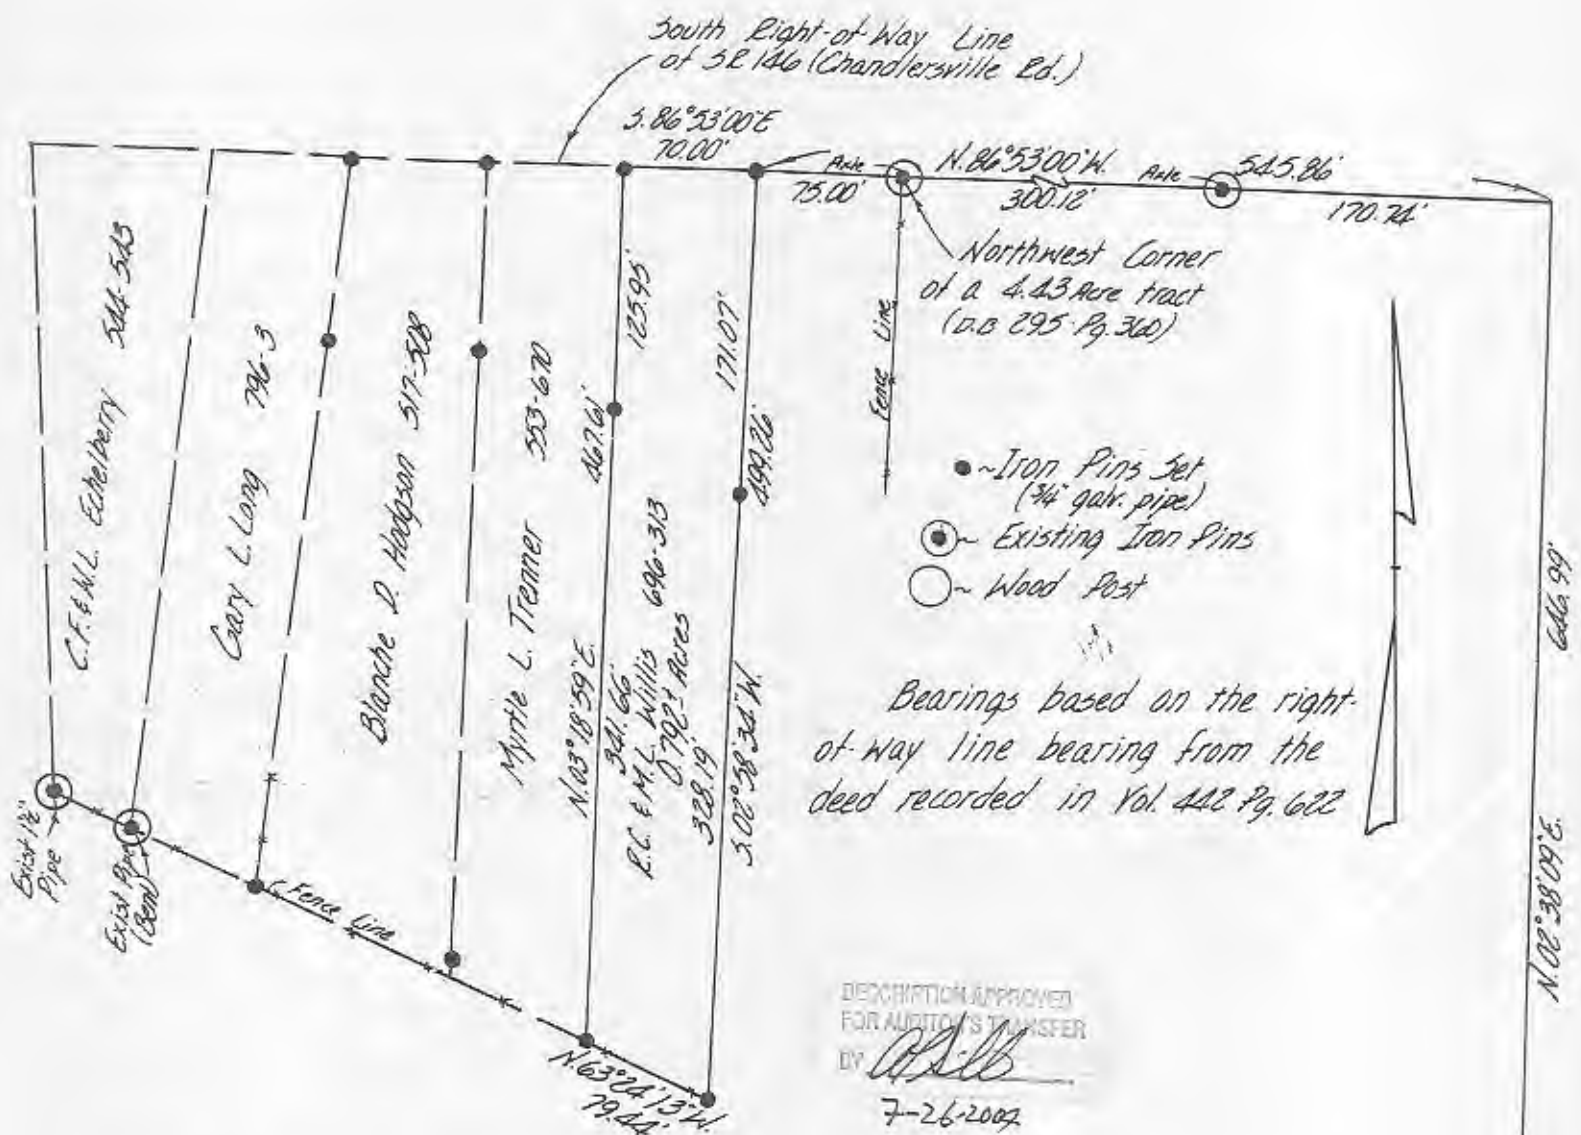 South Right-of-Way Line
of SR 146 (Chandlersville Rd.)
S.86°53'00"E
70.00'
Axle
75.00'
N.86°53'00"W.
300.12'
Axle
545.86'
170.74'
Northwest Corner
of a 4.43 Acre tract
(D.B 295-Pg.360)
Fence Line
C.F. & W.L. Echelberry 544-543
Gary L. Long 796-3
Blanche D. Hodgson 517-508
Myrtle L. Trenner 553-670
N.03°18'59"E.
467.61'
125.95'
341.66'
R.C. & M.L. Willis 696-313
0.792± Acres
171.07'
499.26'
328.19'
S.02°58'34"W.
● ~Iron Pins Set
(3/4" galv. pipe)
~ Existing Iron Pins
~ Wood Post
Bearings based on the right-
of-way line bearing from the
deed recorded in Vol. 442 Pg. 622
646.99'
N.02°38'09"E.
Exist 1½"
Pipe
Exist Pipe
(Bent)
Fence Line
N.63°24'13"W.
79.44'
DESCRIPTION APPROVED
FOR AUDITOR'S TRANSFER
BY
7-26-2004